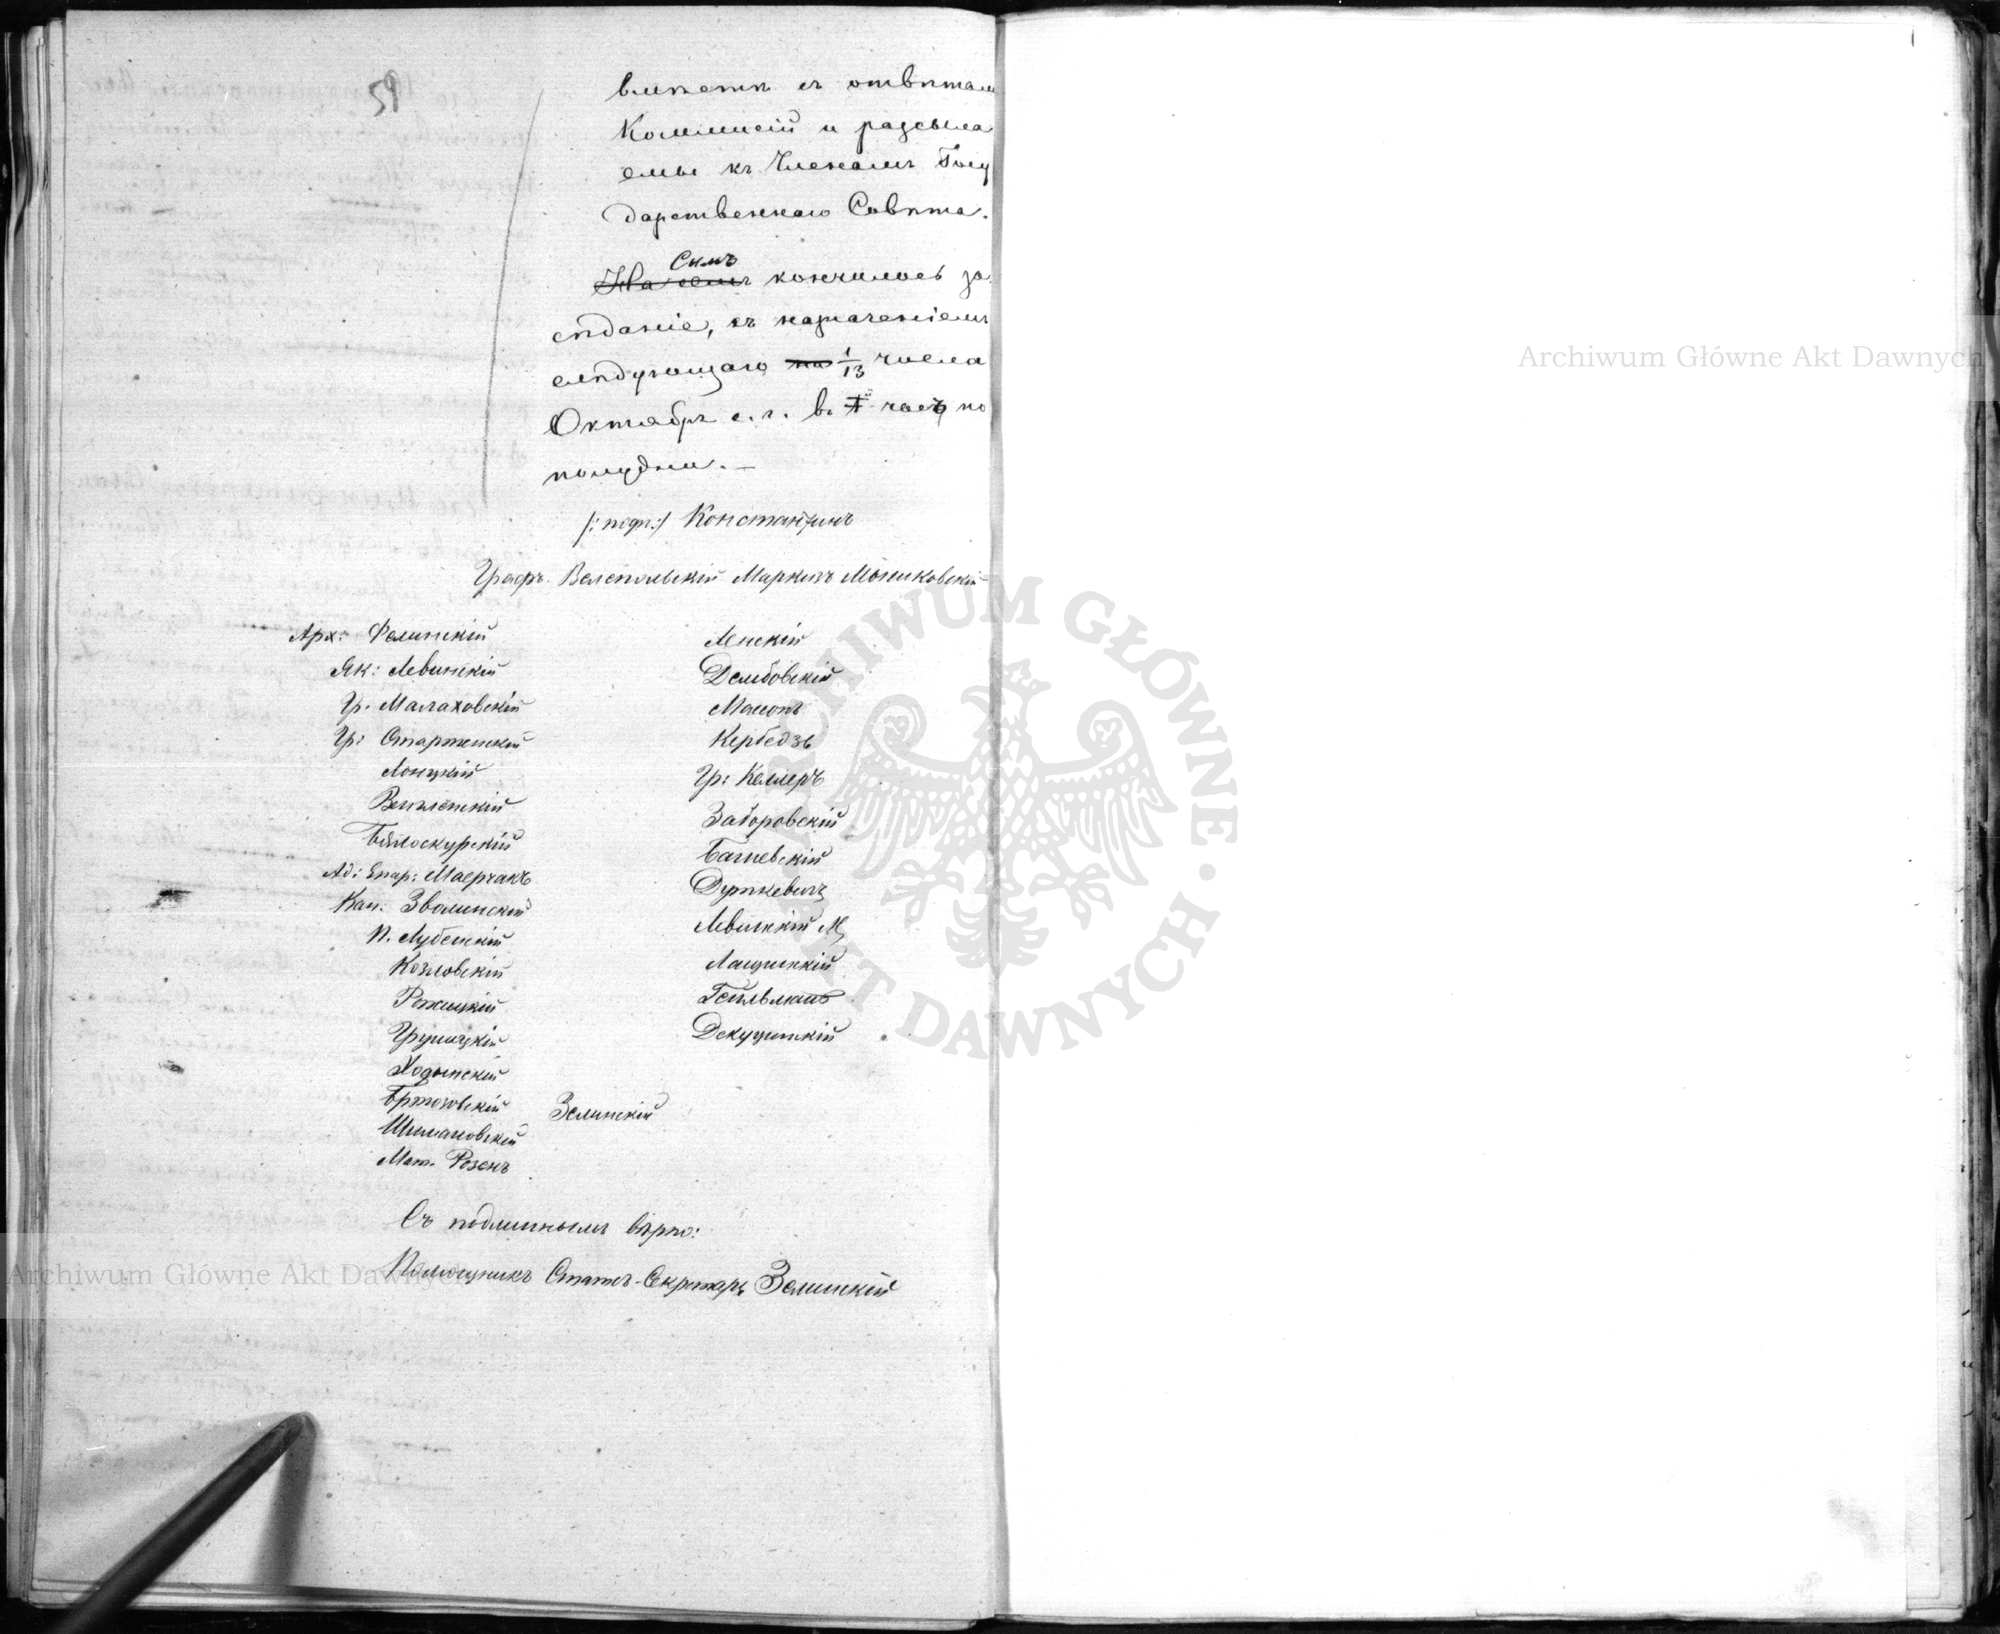 59
вмѣстѣ съ отвѣтами
Коммисій и разсыла
емы къ Членамъ Госу
дарственнаго Совѣта.
Симъ
На семъ кончилось за
сѣданіе, съ назначеніемъ
слѣдующаго на 1/13 числа
Октября с. г. въ часъ по
полудни. —
/: подп:/ Константинъ
Графъ Велепольскій Маркизъ Мышковскій
Арх: Фелинскій
Як: Левинскій
Гр. Малаховскій
Гр:
Лонцкій
Венглецкій
Бѣлоскурскій
Ад: Епар: Маерчакъ
Кан: Зволинскій
П. Лубенскій
Козловскій
Рожицкій
Грушецкій
Ходынскій
Бртозовскій
Шимановскій
Мат. Розенъ
Ленскій
Дембовскій
Масонъ
Кербедзъ
Гр: Келлеръ
Заборовскій
Багневскій
Дуткевичъ
Левинскій М
Лащинскій
Гейльманъ
Декуцинскій
Зелинскій
Съ подлиннымъ вѣрно:
Помощникъ Статсъ-Секретаря Зелинскій
Archiwum Główne Akt Dawnych
Archiwum Główne Akt Dawnych
ARCHIWUM GŁÓWNE · AKT DAWNYCH ·